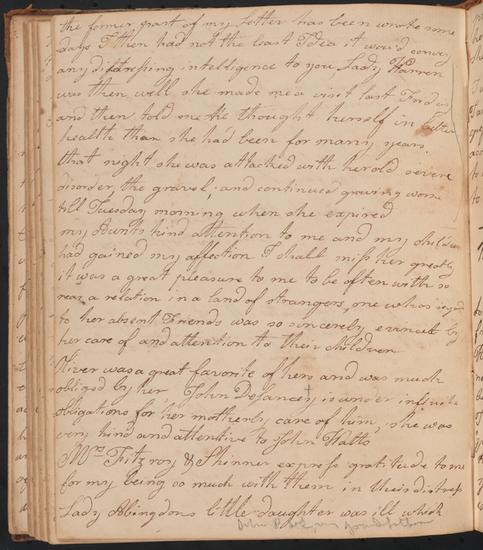 the former part of my Letter has been wrote some
days I then had not the least Idea it wou'd convey
any distressing intelligence to you, Lady Warren
was then well she made me a visit last
and then told me she thought herself in better
health than she had been for many years.
that night she was attacked with her old severe
disorder, the gravel, and continued growing worse
till Tuesday morning when she expired
my Aunts kind attention to me and my children
had gained my affection I shall miss her greatly
it was a great pleasure to me to be often with so
near a relation in a land of strangers, one whos regard
to her absent Friends was so sincerely evinced by
her care of and attention to their children
Oliver was a great favorite of hers and was much
obliged by her John DeLancey is under infinite
obligations for her motherly care of him, she was
very kind and attentive to John Watts
Mrs Fitzroy & Skinner express gratitude to me
for my being so much with them in their distress
Lady Abingdons little daughter was ill which
John grandfather